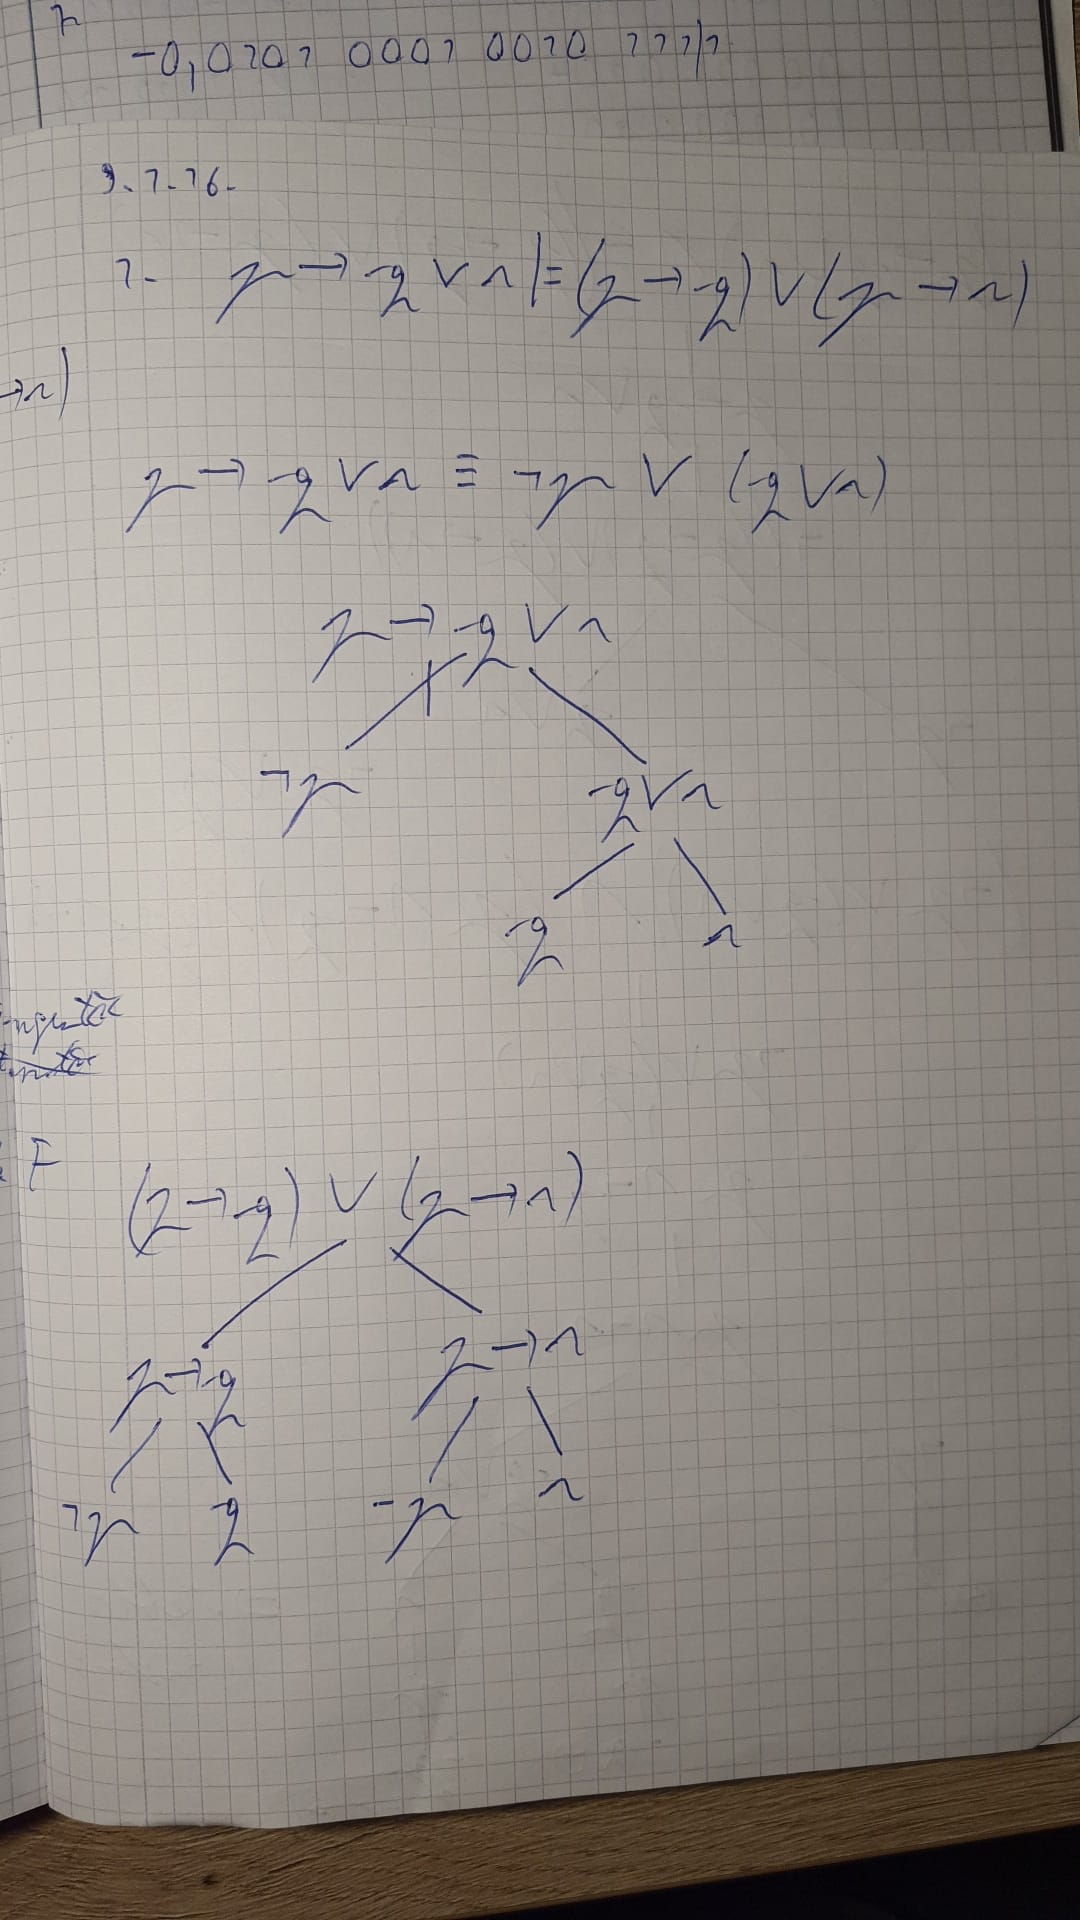 1
-0,0101 0001 0010 1111
9.1.16.
1. p → q ∨ r ⊨ (p → q) ∨ (p → r)
→ r)
p → q ∨ r ≡ ¬p ∨ (q ∨ r)
p → q ∨ r
¬p q ∨ r
q r
F
(p → q) ∨ (p → r)
p → q p → r
¬p q ¬p r